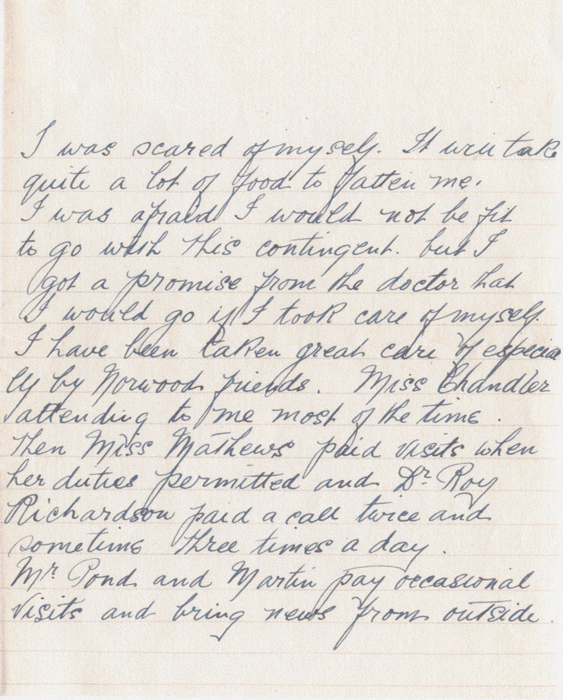 I was scared of myself. It will take
quite a lot of food to fatten me.
I was afraid I would not be fit
to go with this contingent. but I
got a promise from the doctor that
I would go if I took care of myself.
I have been taken great care of especia
lly by Norwood friends. Miss Chandler
attending to me most of the time.
Then Miss Mathews paid visits when
her duties permitted and Dr. Roy
Richardson paid a call twice and
sometims three times a day.
Mr. Pond and Martin pay occasional
visits and bring news from outside.